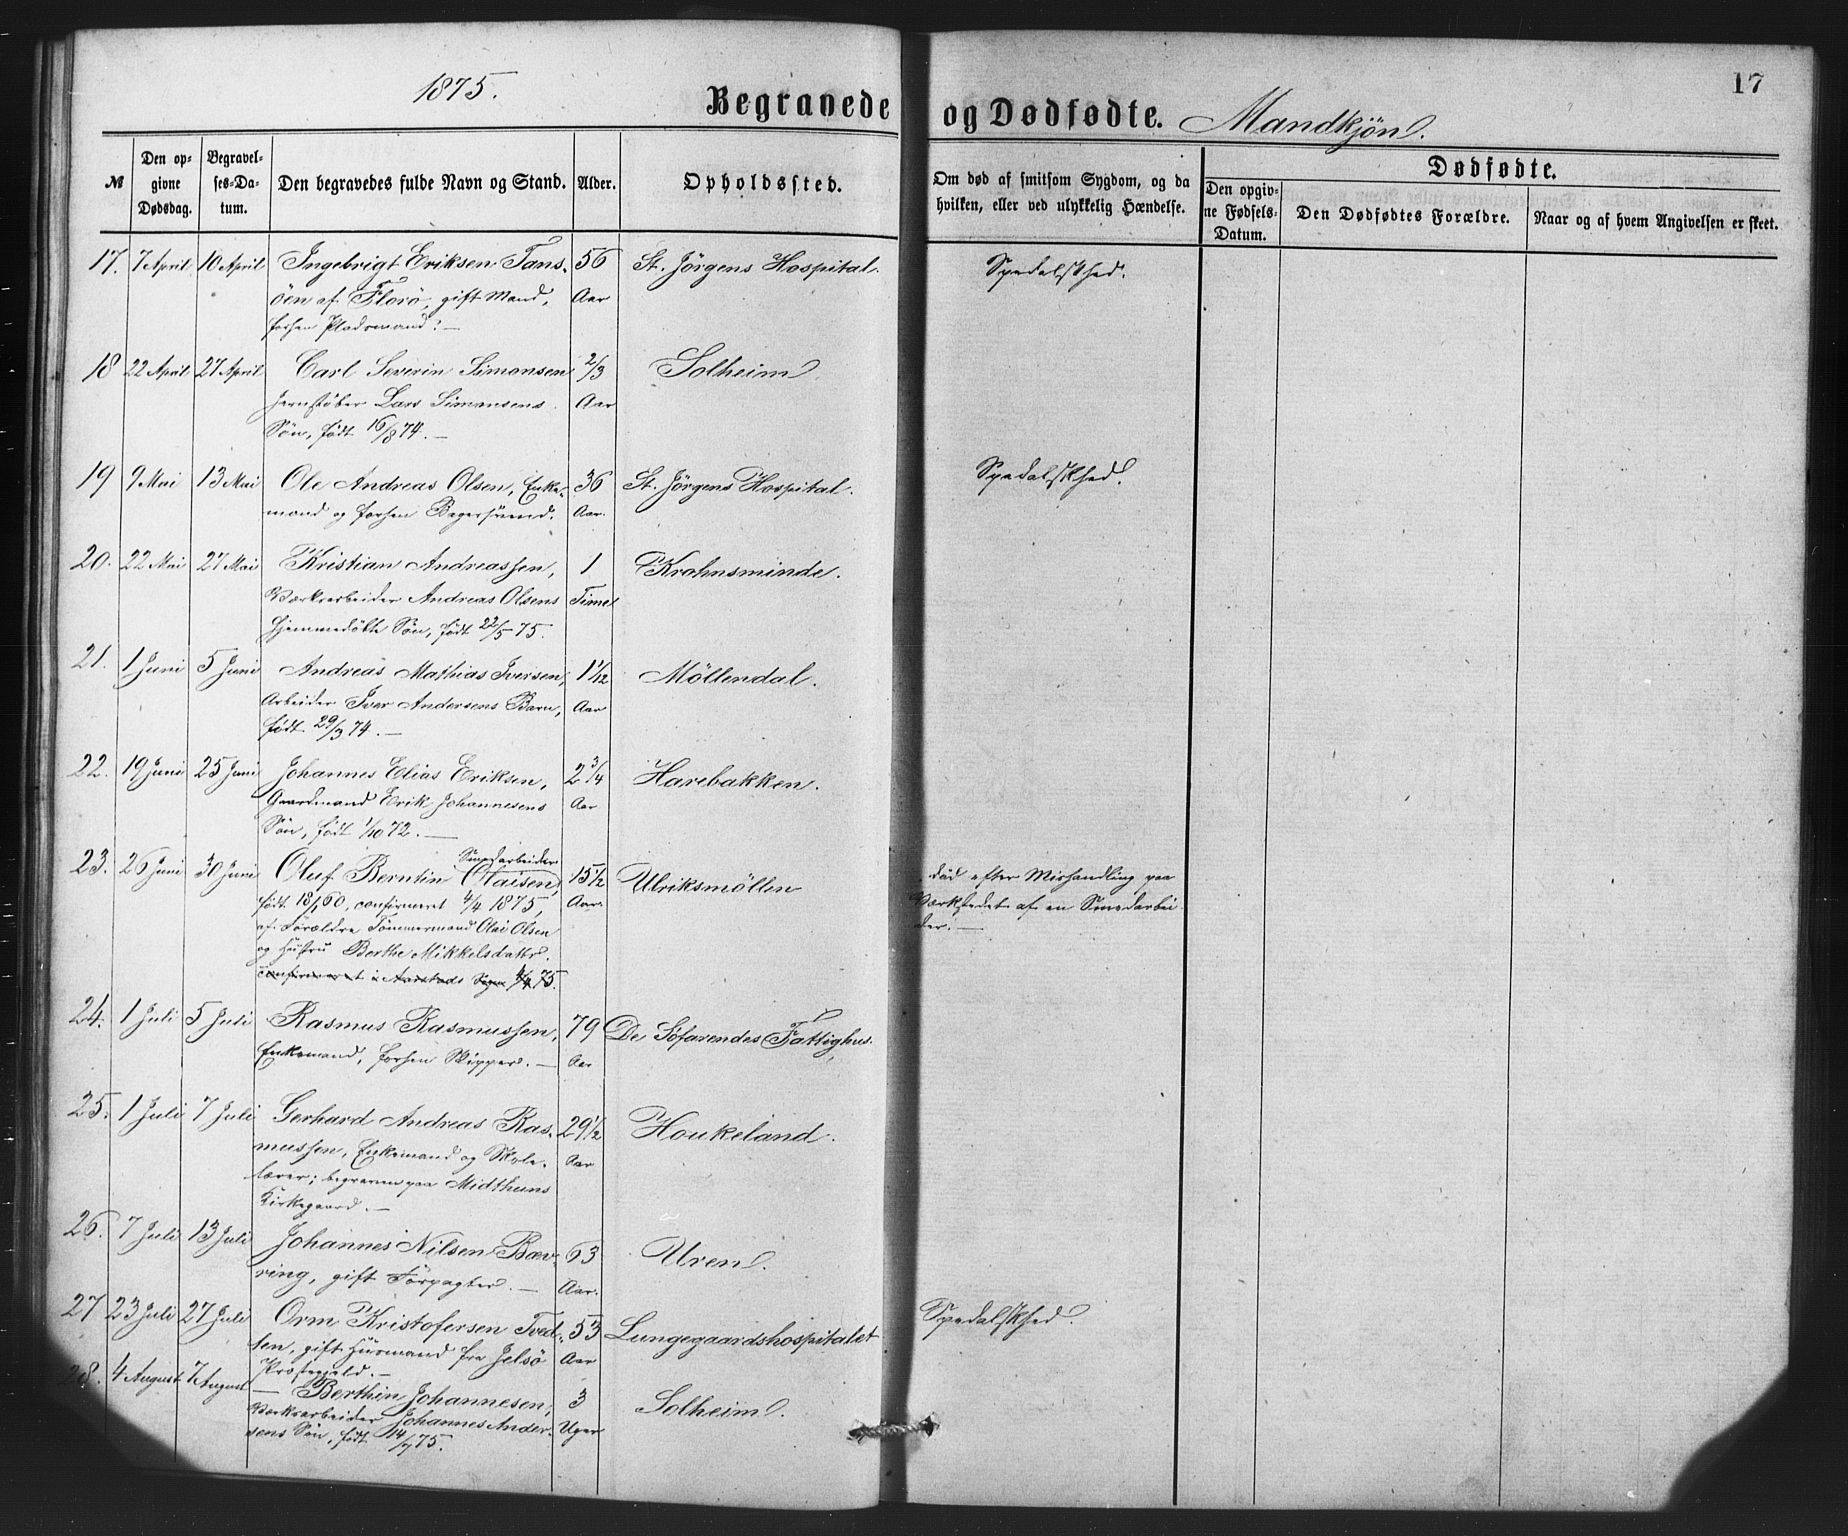 1875.
Begravede og Dødfødte. Mandkjøn.
17
№
Den opgivne Dødsdag.
Begravelses-Datum.
Den begravedes fulde Navn og Stand.
Alder.
Opholdssted.
Om død af smitsom Sygdom, og da hvilken, eller ved ulykkelig Hændelse.
Dødfødte.
Den opgivne Fødsels-Datum.
Den Dødfødtes Forældre.
Naar og af hvem Angivelsen er skeet.
17. 7 April 10 April Ingebrigt Eriksen Tans- 56 St. Jörgens Hospital. Spedalskhed.
öen af Florö, gift Mand, Aar
forhen Pladsmand. —
18 22 April 27 April Carl Severin Simonsen 2/3 Solheim
Jernstøber Lars Simonsens Aar
Sön, født 16/8 74. —
19 9 Mai 13 Mai Ole Andreas Olsen, Enke- 36 St. Jörgens Hospital. Spedalskhed.
mand og forhen Bagersvend. Aar.
20. 22 Mai 27 Mai Kristian Andreassen, 1 Krohnsminde.
Værksarbeider Andreas Olsens Time
hjemmedöbte Sön, født 22/5 75.
21. 1 Juni 5 Juni Andreas Mathias Iversen, 1 1/12 Möllendal.
Arbeider Iver Andersens Barn, Aar
født 29/3 74. —
22. 19 Juni 25 Juni Johannes Elias Eriksen, 2 3/4 Harebakken.
Gaardmand Erik Johannesens Aar
Sön, født 1/10 72. —
Smedarbeider
23. 26 Juni 30 Juni Oluf Berntin Olaisen, 15 1/2 Ulriksmöllen død efter Mishandling paa
født 18/1 60, confirmeret 4/4 1875, Aar. Værkstedet af en Smedarbei
af Forældre Tömmermand Olai Olsen der. —
og Hustru Berthe Mikkelsdattr.
confirmeret i Aarstads Sogn 4/4 75.
24. 1 Juli 5 Juli Rasmus Rasmussen, 79 De Söfarendes Fattighus.
Enkemand, forhen Skipper. — Aar
25. 1 Juli 7 Juli Gerhard Andreas Ras- 29 1/2 Houkeland.
mussen, Enkemand og Skole- Aar
lærer; begraven paa Midthuns
Kirkegaard. —
26. 7 Juli 13 Juli Johannes Nilsen Bæv- 63 Uren.
ring, gift Forpagter. — Aar.
27 23 Juli 27 Juli Orm Kristofersen Tved- 53 Lungegaardshospitalet Spedalskhed.
ten, gift Husmand fra Jelsö Aar
Præstegjeld. —
28. 4 August 7 August — Berthin Johannesen, 3 Solheim.
Værksarbeider Johannes Ander- Uger
sens Sön, født 14/7 75.